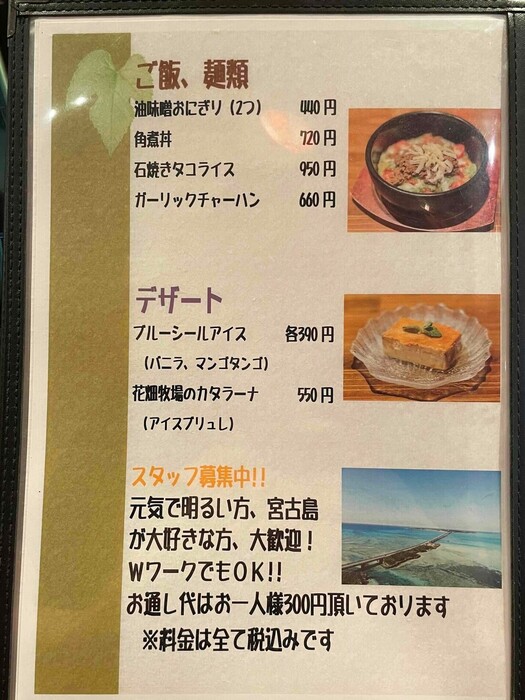 ご飯、麺類
油味噌おにぎり（2つ） 440円
角煮丼 720円
石焼きタコライス 950円
ガーリックチャーハン 660円
デザート
ブルーシールアイス 各390円
（バニラ、マンゴタンゴ）
花畑牧場のカタラーナ 550円
（アイスブリュレ）
スタッフ募集中!!
元気で明るい方、宮古島
が大好きな方、大歓迎！
WワークでもOK!!
お通し代はお一人様300円頂いております
※料金は全て税込みです